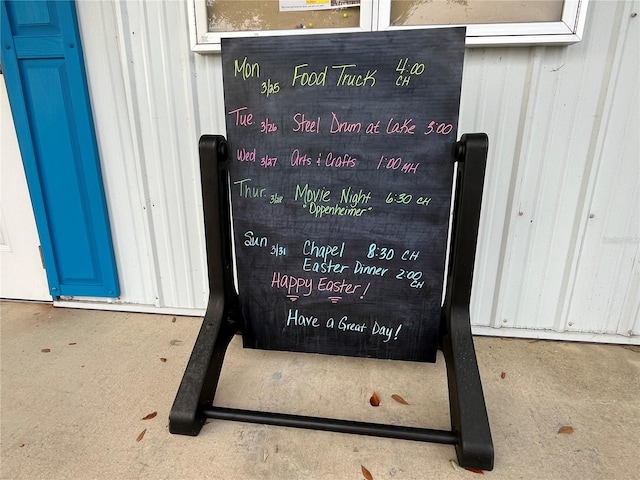 Mon 3/25 Food Truck 4:00 CH
Tue. 3/26 Steel Drum at Lake 3:00
Wed 3/27 Arts & Crafts 1:00 MH
Thur. 3/28 Movie Night 6:30 CH
"Oppenheimer"
Sun 3/31 Chapel 8:30 CH
Easter Dinner 2:00 CH
Happy Easter!
Have a Great Day!